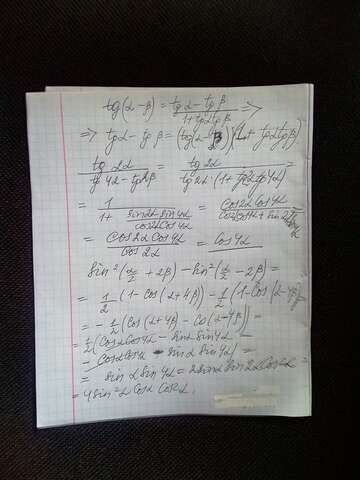 tg(α-β) = (tgα - tgβ)/(1+tgα tgβ) =>
=> tgα - tgβ = (tg(α-β))(1+ tgα tgβ)
tg2α/(tg4α - tg2β) = tg2α/(tg2α·(1+tg2α tg4α)) =
= 1/(1+ (sin2α sin4α)/(cos2α cos4α)) = (cos2α cos4α)/(cos2α cos4α + sin2α sin4α)
= (cos2α cos4α)/cos2α = cos4α
sin²(α/2 + 2β) - sin²(α/2 - 2β) =
= 1/2 (1-cos(α+4β)) - 1/2 (1-cos(α-4β))
= - 1/2 (cos(α+4β) - cos(α-4β)) =
= 1/2 (cosα cos4α - sinα sin4α -
- cosα cos4α - sinα sin4α) =
= sinα sin4α = 2sinα sin2α cos2α =
= 4sin²α cosα cos2α.